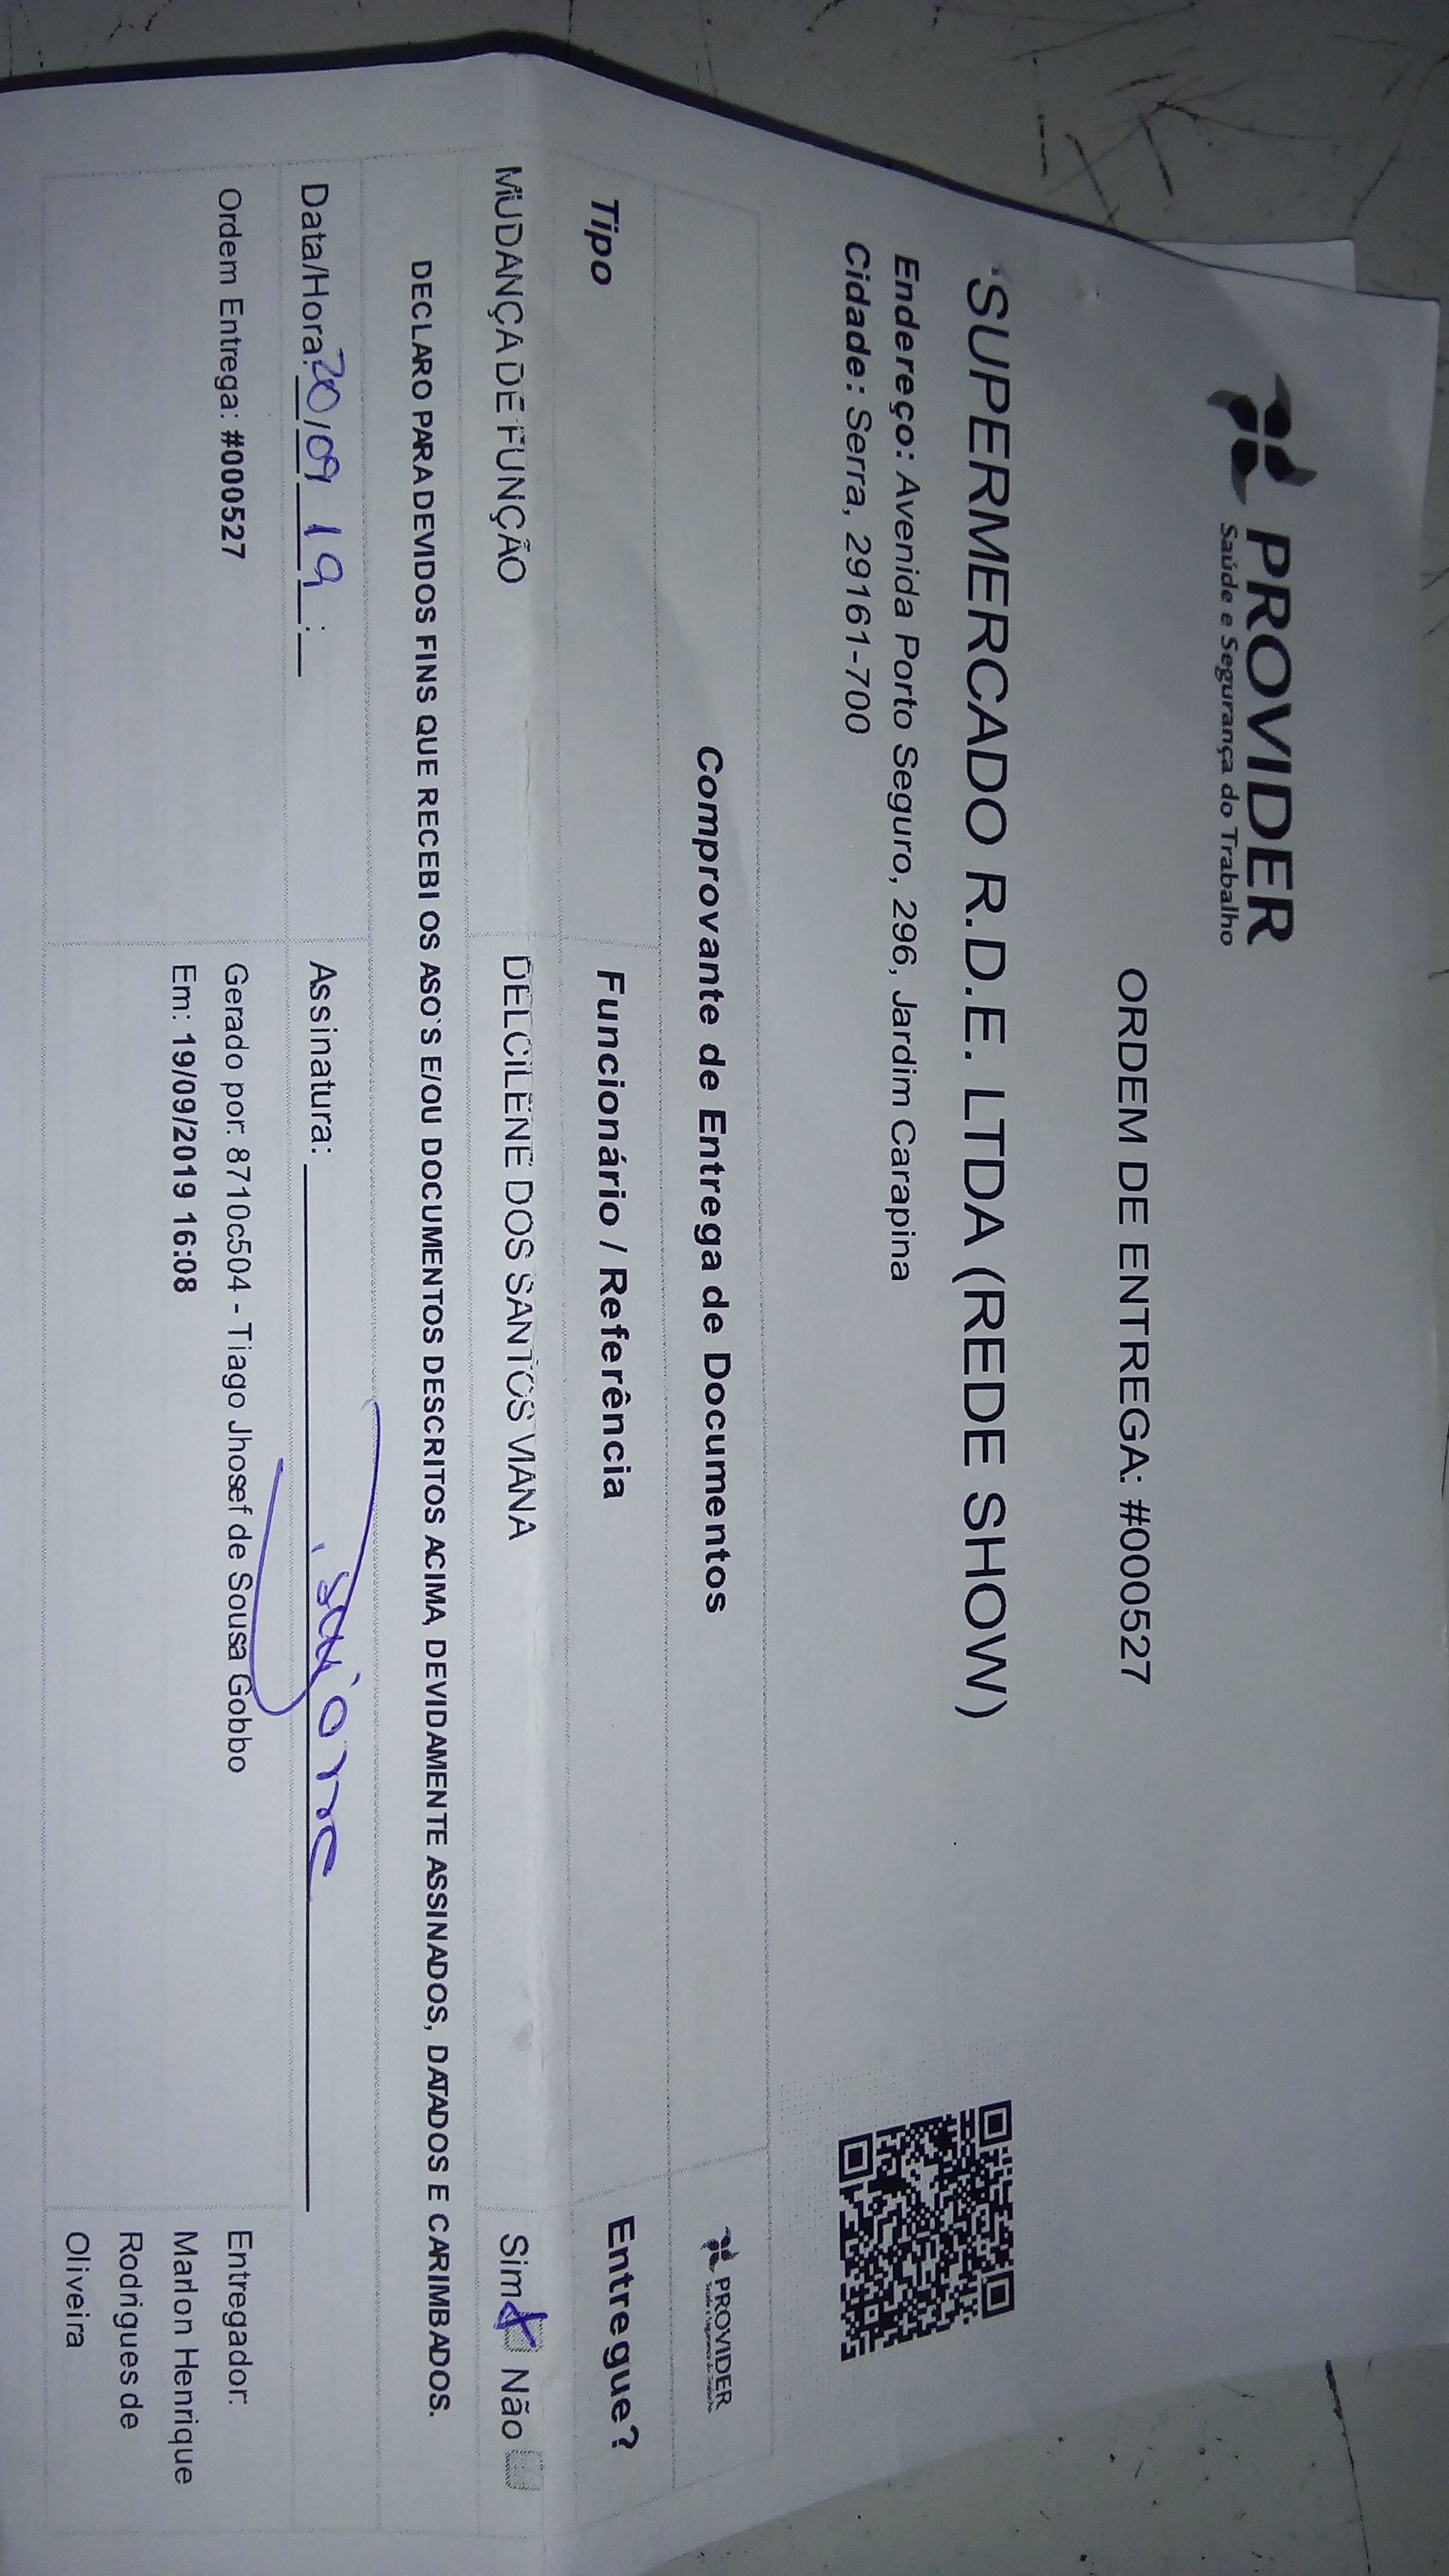 PROVIDER
Saúde e Segurança do Trabalho
ORDEM DE ENTREGA: #000527
SUPERMERCADO R.D.E. LTDA (REDE SHOW)
Endereço: Avenida Porto Seguro, 296, Jardim Carapina
Cidade: Serra, 29161-700
Comprovante de Entrega de Documentos
PROVIDER
Saúde e Segurança do Trabalho
Tipo Funcionário / Referência Entregue?
MUDANÇA DE FUNÇÃO DELCILENE DOS SANTOS VIANA Sim Não
DECLARO PARA DEVIDOS FINS QUE RECEBI OS ASO`S E/OU DOCUMENTOS DESCRITOS ACIMA, DEVIDAMENTE ASSINADOS, DATADOS E CARIMBADOS.
Data/Hora: 20/09 19 : Assinatura:
Ordem Entrega: #000527 Gerado por: 8710c504 - Tiago Jhosef de Sousa Gobbo Entregador:
Em: 19/09/2019 16:08 Marlon Henrique
Rodrigues de
Oliveira